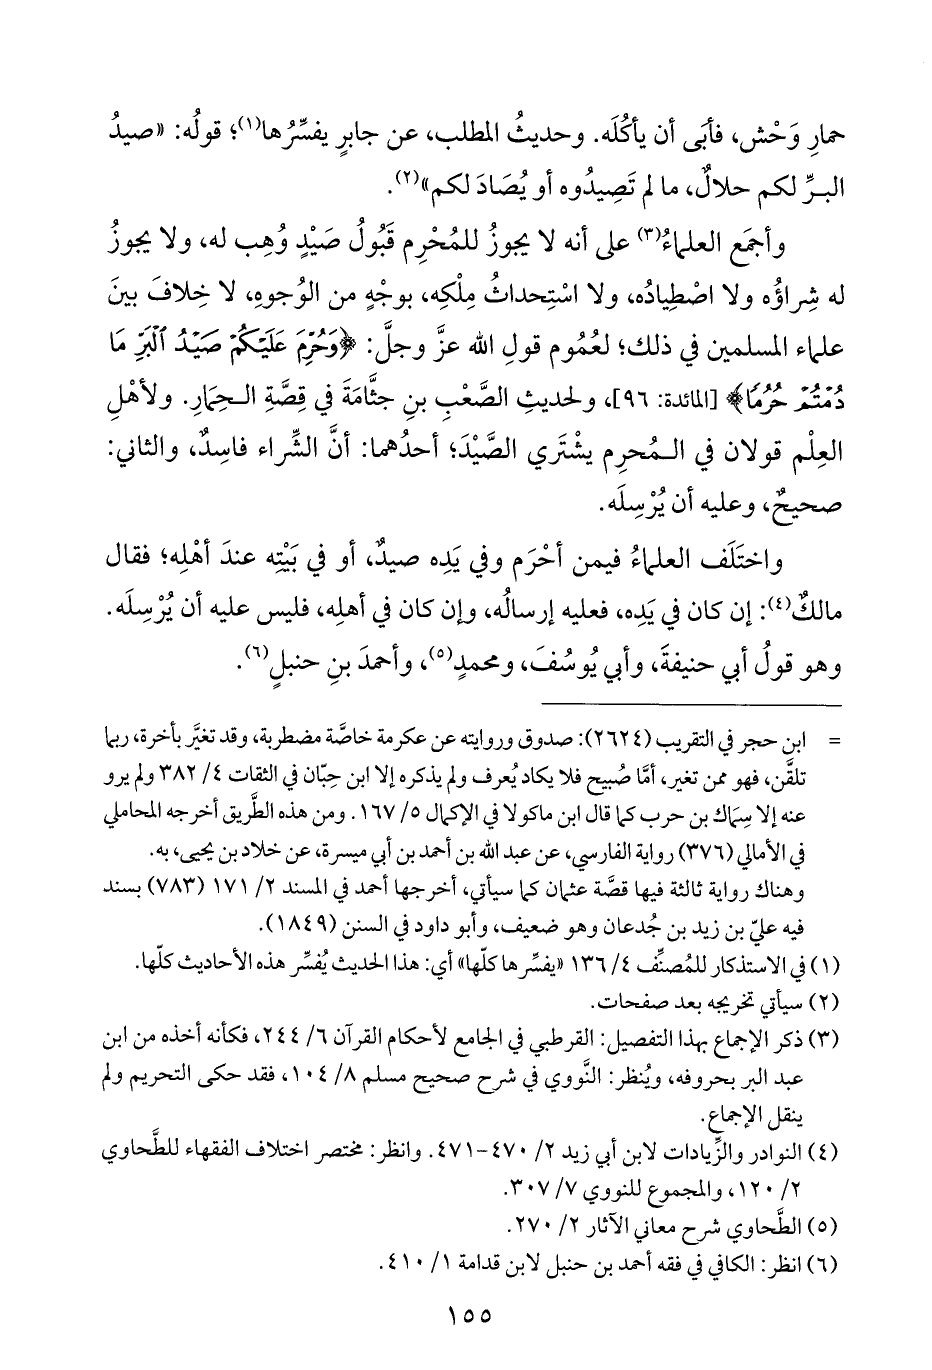 حمارِ وَحْش، فأبَى أن يأكُلَه. وحديثُ المطلب، عن جابرٍ يفسِّرُها(١)؛ قولُه: «صيدُ
البـرِّ لكم حلالٌ، ما لم تَصِيدُوه أو يُصَادَ لكم»(٢).
وأجمَع العلماءُ(٣) على أنه لا يجوزُ للمُحْرِم قَبُولُ صَيْدٍ وُهِب له، ولا يجوزُ
له شِراؤُه ولا اصْطِيادُه، ولا اسْتِحداثُ مِلْكِه، بوجْهٍ من الوُجوهِ، لا خِلافَ بينَ
علماء المسلمين في ذلك؛ لعُمُوم قولِ الله عزَّ وجلَّ: ﴿وَحُرِّمَ عَلَيْكُمْ صَيْدُ ٱلْبَرِّ مَا
دُمْتُمْ حُرُمًا﴾ [المائدة: ٩٦]، ولحديثِ الصَّعْبِ بنِ جثَّامَةَ في قِصَّةِ الـحِمَارِ. ولأهْلِ
العِلْم قولان في الـمُحرِم يشْتَري الصَّيْدَ؛ أحدُهما: أنَّ الشِّراء فاسِدٌ، والثاني:
صحيحٌ، وعليه أن يُرْسِلَه.
واختَلَف العلماءُ فيمن أحْرَم وفي يَدِه صيدٌ، أو في بَيْتِه عندَ أهْلِه؛ فقال
مالكٌ(٤): إن كان في يَدِه، فعليه إرسالُه، وإن كان في أهلِه، فليس عليه أن يُرْسِلَه.
وهو قولُ أبي حنيفةَ، وأبي يُوسُفَ، ومحمدٍ(٥)، وأحمدَ بنِ حنبلٍ(٦).
= ابن حجر في التقريب (٢٦٢٤): صدوق وروايته عن عكرمة خاصَّة مضطربة، وقد تغيَّر بأخرة، ربما
تلقَّن، فهو ممن تغير، أمَّا صُبيح فلا يكاد يُعرف ولم يذكره إلا ابن حِبَّان في الثقات ٤/ ٣٨٢ ولم يرو
عنه إلا سِمَاك بن حرب كما قال ابن ماكولا في الإكمال ٥/ ١٦٧. ومن هذه الطَّريق أخرجه المحاملي
في الأمالي (٣٧٦) رواية الفارسي، عن عبد الله بن أحمد بن أبي ميسرة، عن خلاد بن يحيى، به.
وهناك رواية ثالثة فيها قصَّة عثمان كما سيأتي، أخرجها أحمد في المسند ٢/ ١٧١ (٧٨٣) بسند
فيه عليّ بن زيد بن جُدعان وهو ضعيف، وأبو داود في السنن (١٨٤٩).
(١) في الاستذكار للمُصنِّف ٤/ ١٣٦ «يفسِّرها كلّها» أي: هذا الحديث يُفسِّر هذه الأحاديث كلّها.
(٢) سيأتي تخريجه بعد صفحات.
(٣) ذكر الإجماع بهذا التفصيل: القرطبي في الجامع لأحكام القرآن ٦/ ٢٤٤، فكأنه أخذه من ابن
عبد البر بحروفه، ويُنظر: النَّووي في شرح صحيح مسلم ٨/ ١٠٤، فقد حكى التحريم ولم
ينقل الإجماع.
(٤) النوادر والزِّيادات لابن أبي زيد ٢/ ٤٧٠-٤٧١. وانظر: مختصر اختلاف الفقهاء للطَّحاوي
٢/ ١٢٠، والمجموع للنووي ٧/ ٣٠٧.
(٥) الطَّحاوي شرح معاني الآثار ٢/ ٢٧٠.
(٦) انظر: الكافي في فقه أحمد بن حنبل لابن قدامة ١/ ٤١٠.
١٥٥